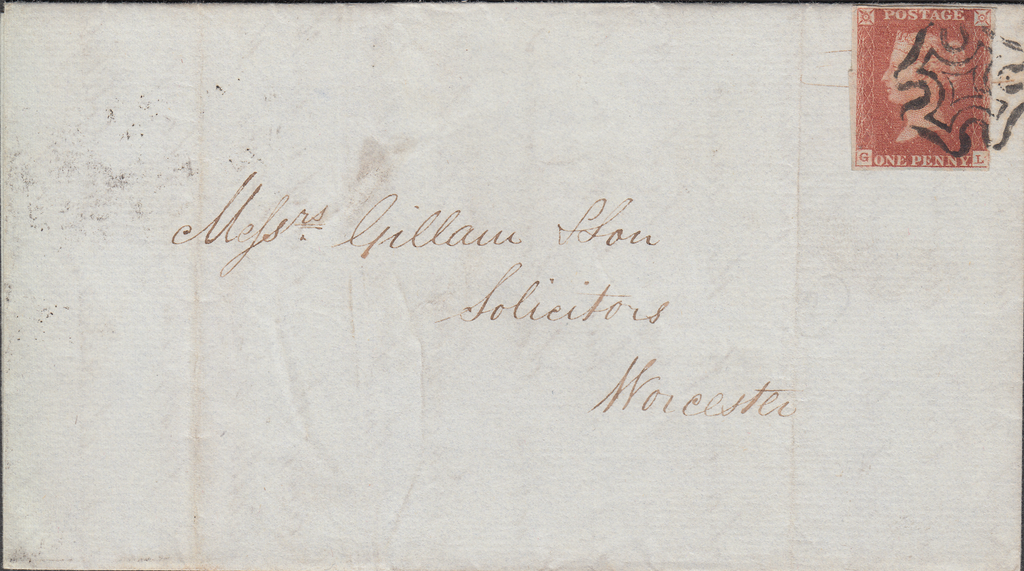 POSTAGE
G ONE PENNY. L
Messrs Gillam & Son
Solicitors
Worcester